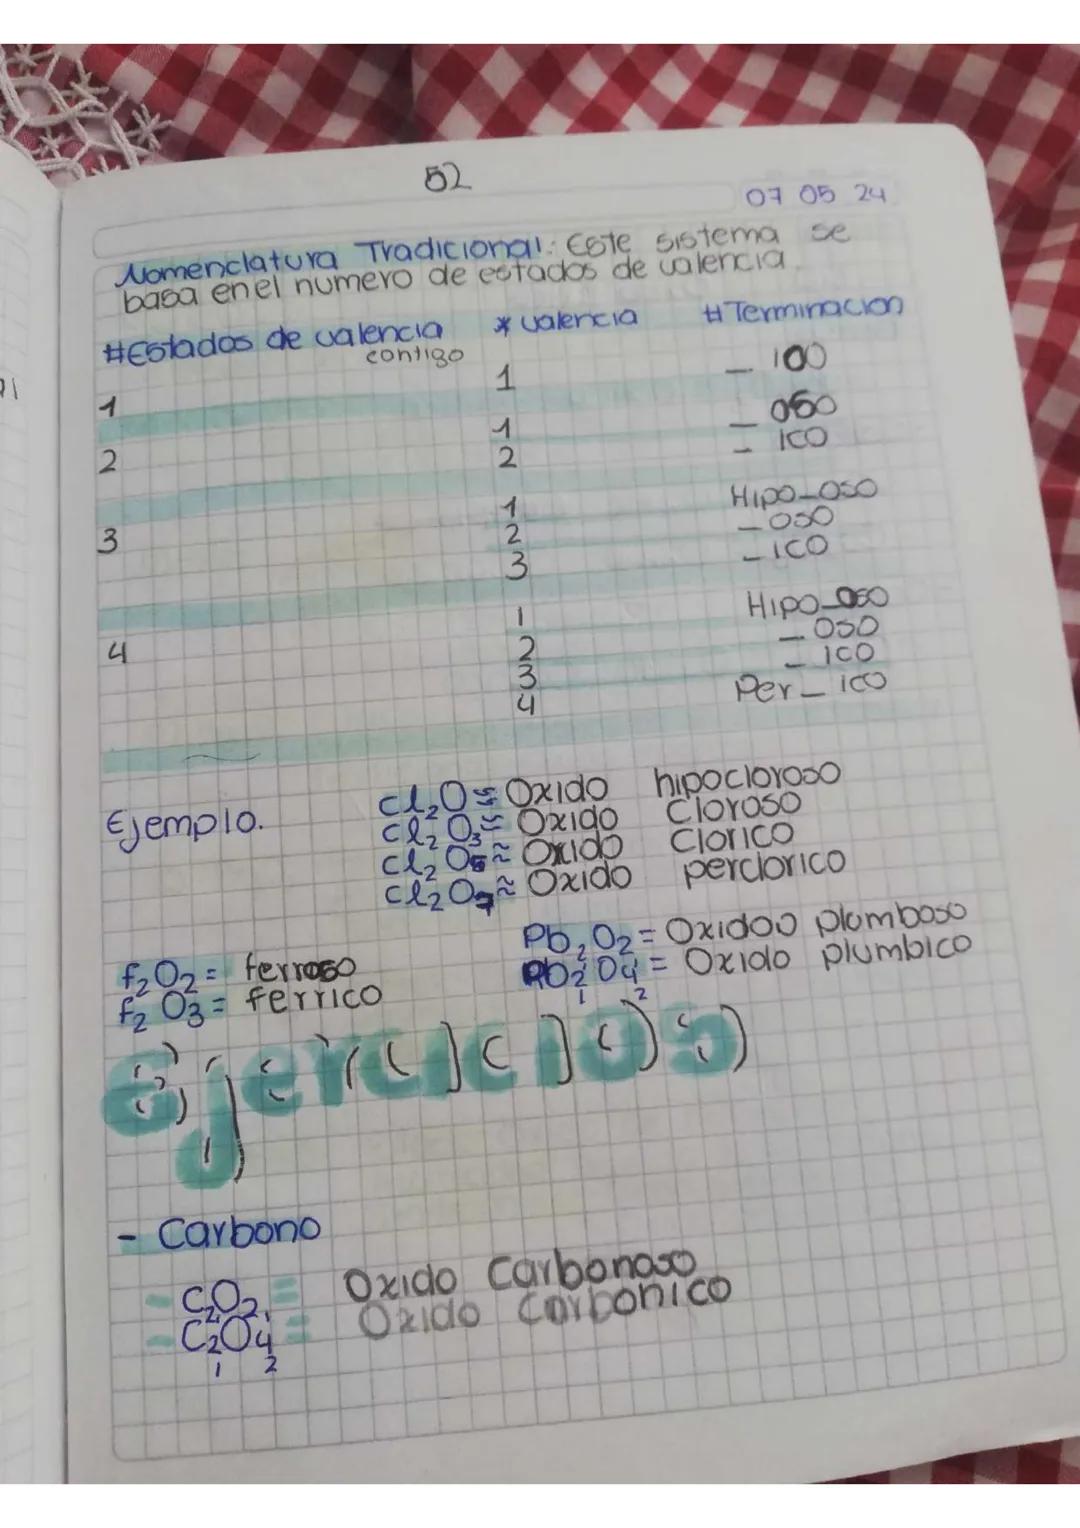 52
07 05 24
Nomenclatura Tradicional: Este sistema se
basa en el numero de estados de valencia
#Estados de valencia * valencia # Terminacion
contigo
1 1 _ ico
2 1 _ oso
2 _ ico
3 1 Hipo_oso
2 _ oso
3 _ ico
4 1 Hipo_oso
2 _ oso
3 _ ico
4 Per_ ico
Ejemplo.
Cl2O ≈ Oxido hipocloroso
Cl2O3 ≈ Oxido Cloroso
Cl2O5 ≈ Oxido Clorico
Cl2O7 ≈ Oxido perclorico
f2O2 = ferroso
f2O3 = ferrico
Pb2O2 = Oxidoo plomboso
Pb2O4 = Oxido plumbico
1 2
ejercicios
- Carbono
- C2O2 = Oxido Carbonoso
- C2O4 = Oxido Carbonico
1 2